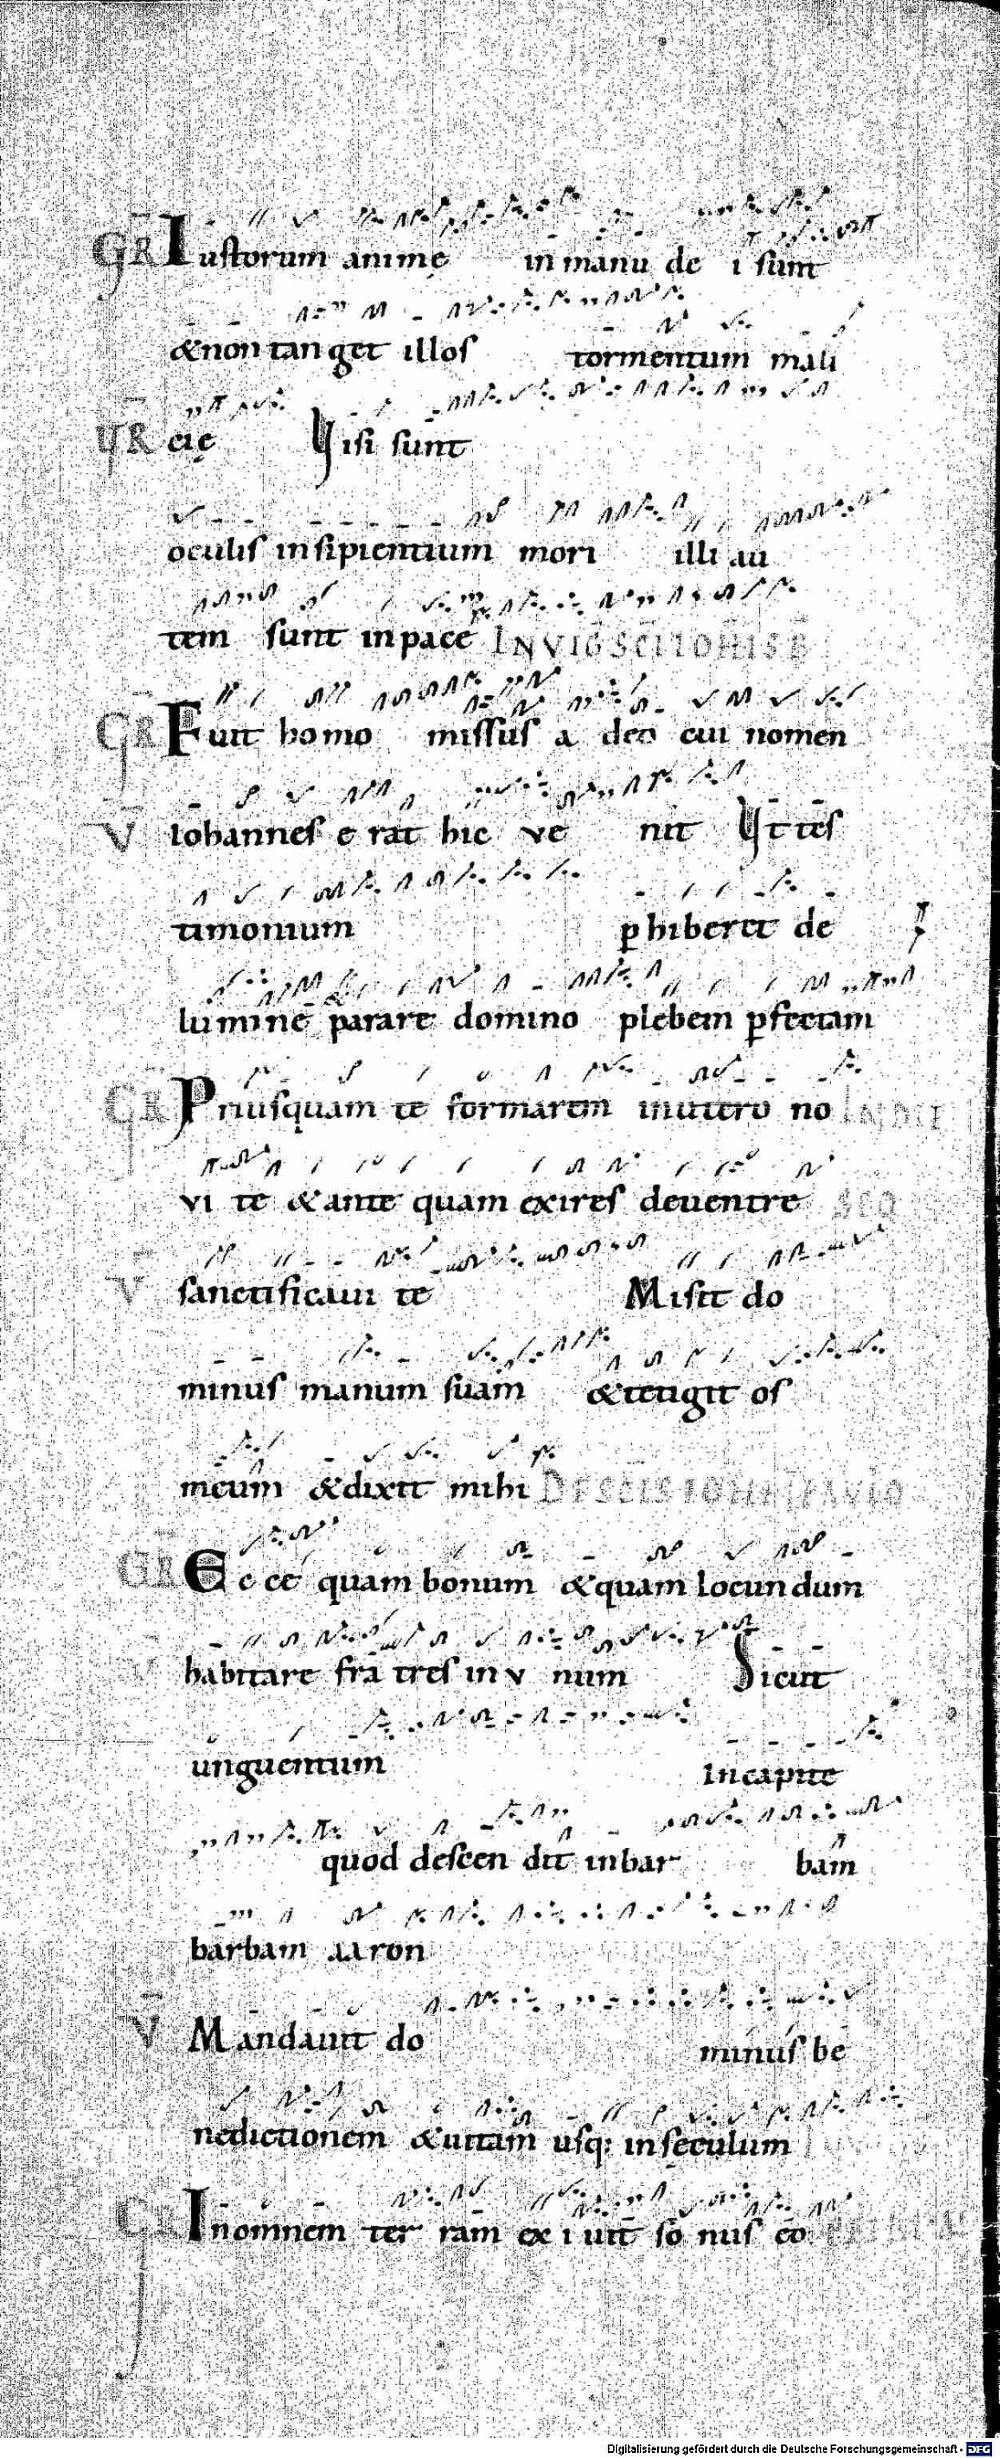 GR Iustorum animę in manu de i sunt
& non tan get illos tormentum mali
VR cię Visi sunt
oculis insipientium mori illi au
tem sunt in pace IN VIG SCI IOHIS B
GR Fuit homo missus a deo cui nomen
V Iohannes e rat hic ve nit Vt tes
timonium phiberet de
lumine parare domino plebem pfectam
GR Priusquam te formarem inutero no IN DIE
vi te & ante quam exires deuentre SCO
V sanctificaui te Misit do
minus manum suam & tetigit os
meum & dixit mihi DE SCIS IOHE PAVLO
GR Ecce quam bonum & quam Iocun dum
habitare fra tres in v num Sicut
unguentum In capite
quod descen dit in bar bam
barbam aaron
V Mandauit do minus be
nedictionem & uitam usq; in seculum
GR In omnem ter ram ex i uit so nus eo
Digitalisierung gefördert durch die Deutsche Forschungsgemeinschaft - DFG